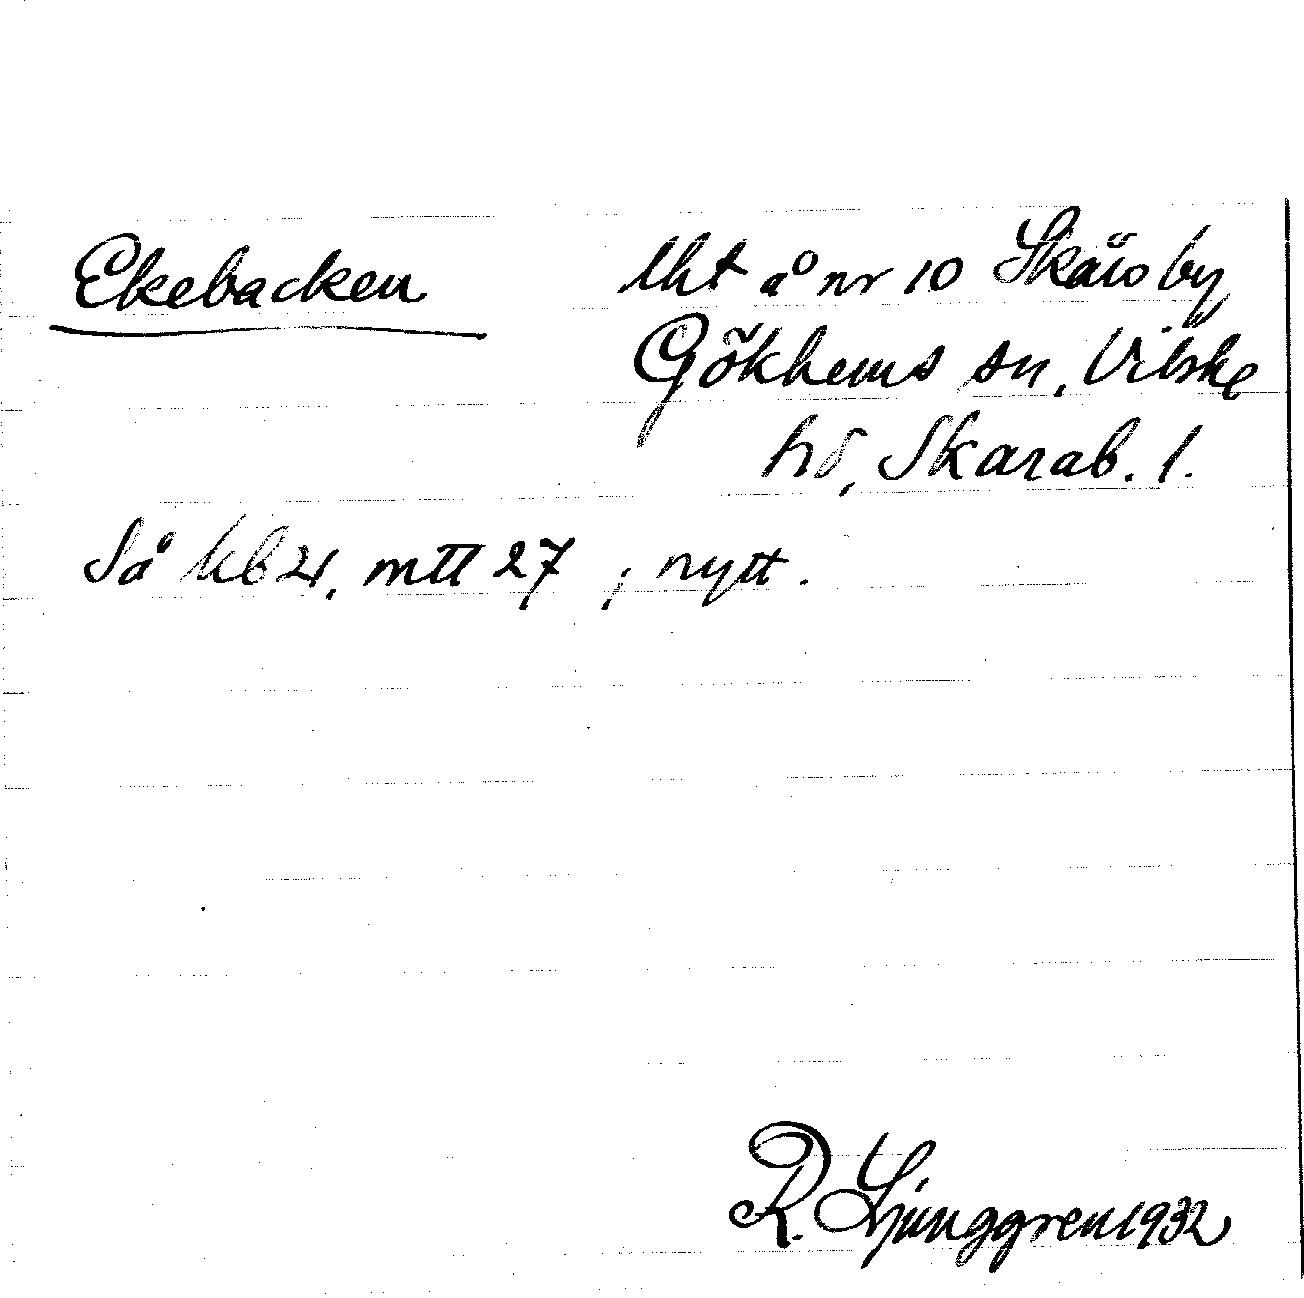 Ekebacken lht å nr 10 Skärvby
Gökhems sn, Vilske
hd, Skarab. l.
Så kb 21, mtt 27 ; nytt.
R. Ljunggren 1932